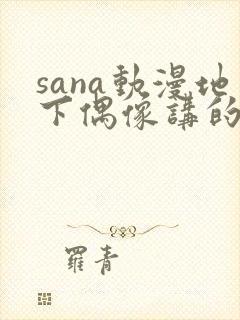 sana動漫地
下偶像講的
羅青